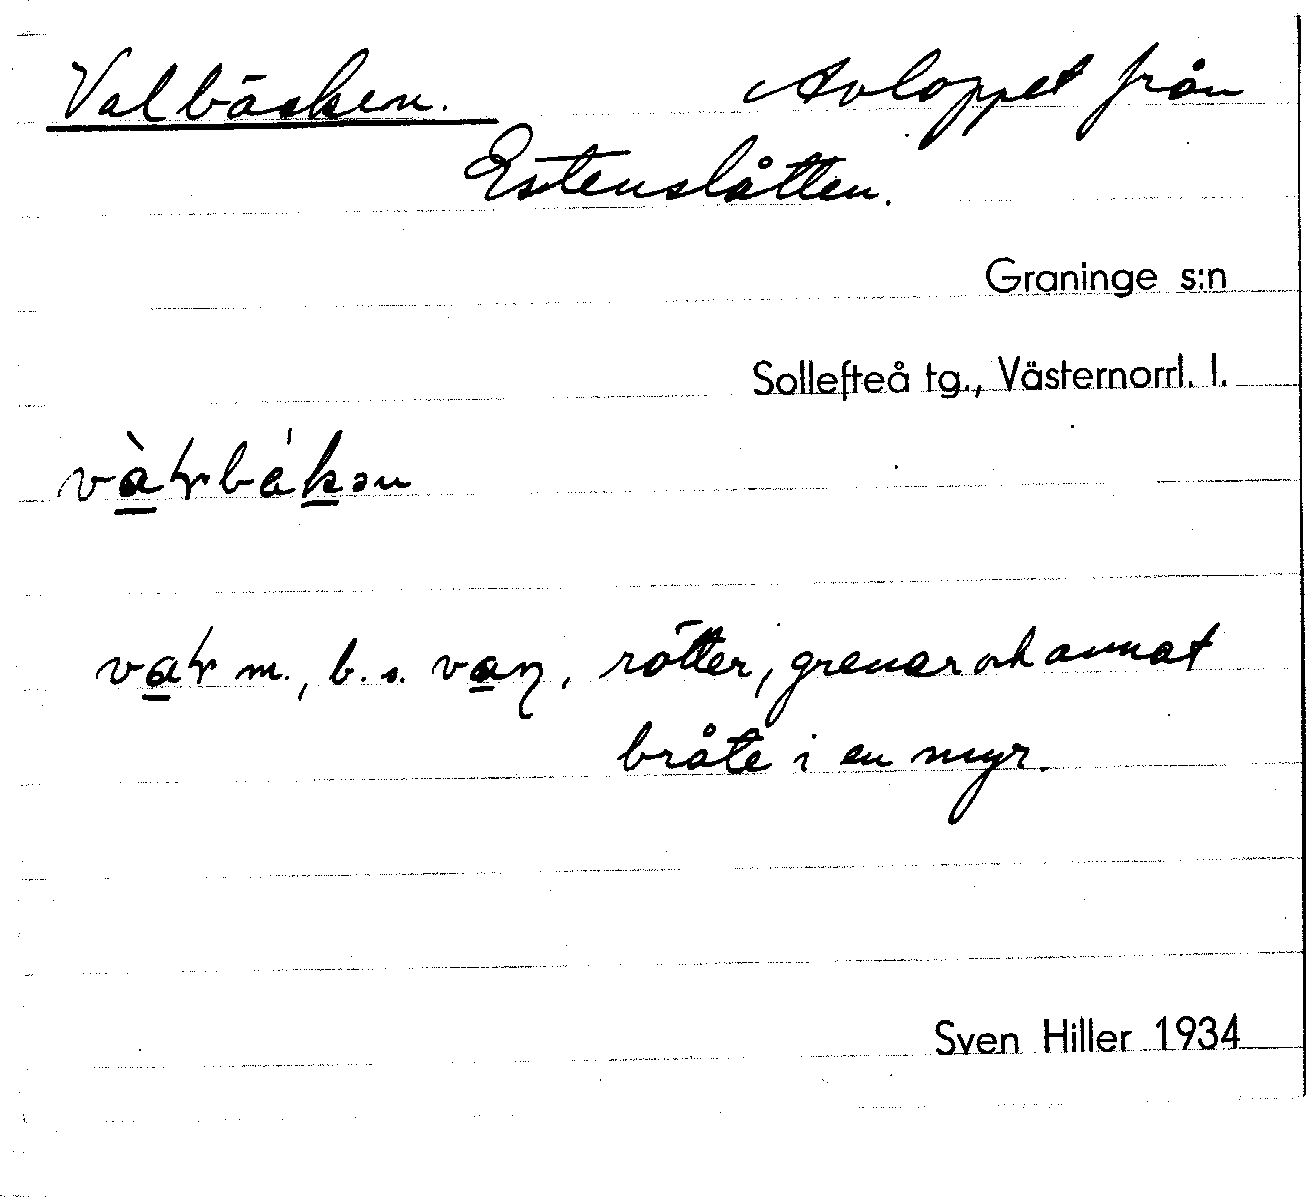 Valbäcken. Avloppet från
Estenslåtten.
Graninge s:n
Sollefteå tg., Västernorrl. l.
vàɽbákən
vaɽ m., b. s. vaɳ, rötter, grenar och annat
bråte i en myr.
Sven Hiller 1934